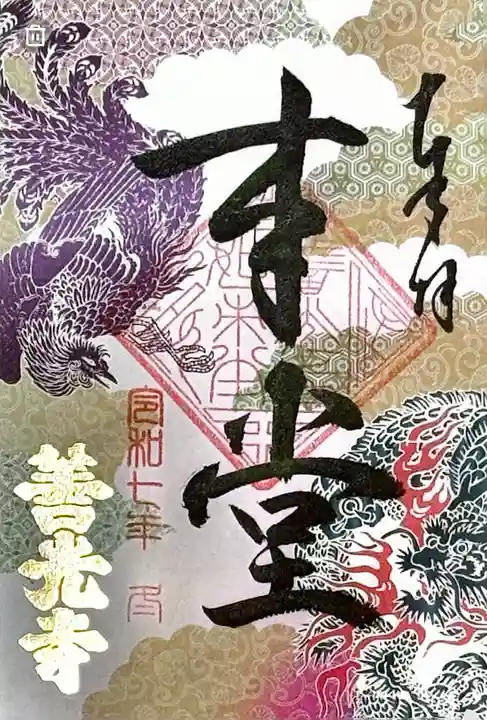 奉拝
本堂
令和七年 月
善光寺